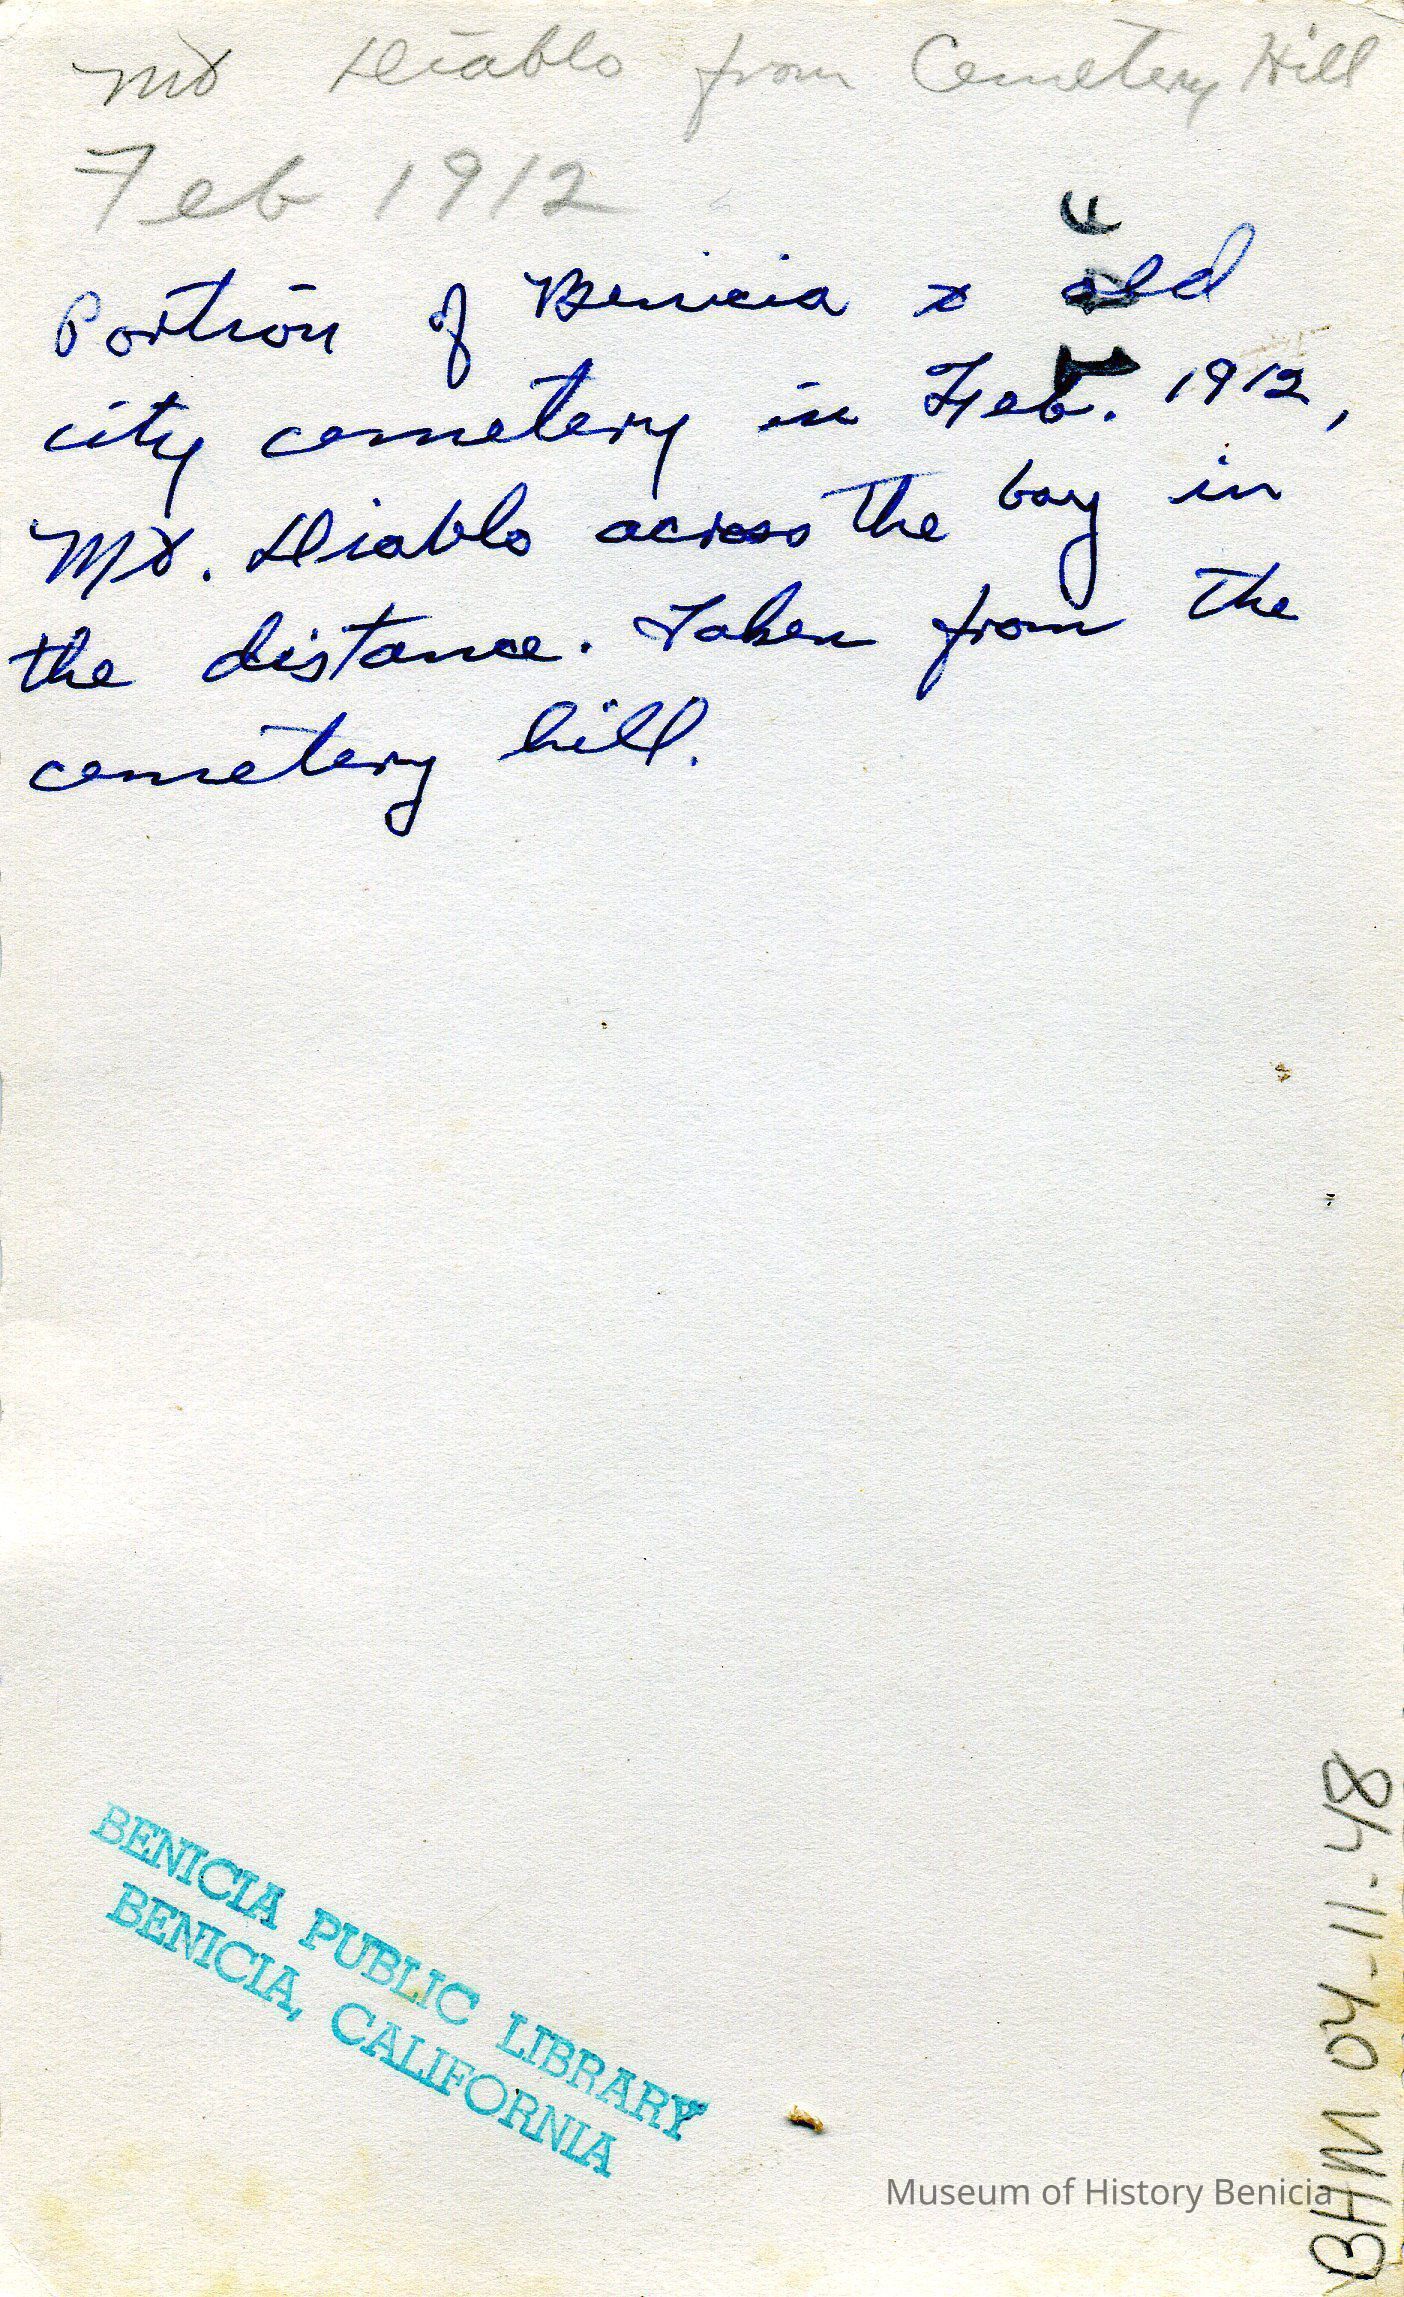 Mt Diablo from Cemetery Hill
Feb 1912
Portion of Benicia & old
city cemetery in Feb. 1912,
Mt. Diablo across the bay in
the distance. Taken from the
cemetery hill.
BENICIA PUBLIC LIBRARY
BENICIA, CALIFORNIA
Museum of History Benicia
BHM 04-11-48